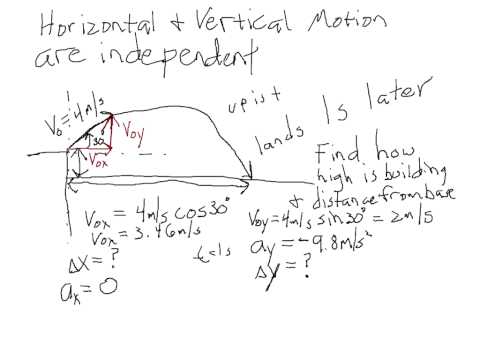 Horizontal & Vertical Motion
are independent
V₀ = 4m/s
30°
V₀y
V₀x
up is +
lands 1s later
Find how
high is building
& distance from base
V₀x = 4m/s cos30°
V₀x = 3.46m/s
Δx = ?
aₓ = 0
t = 1s
V₀y = 4m/s sin30° = 2m/s
ay = -9.8m/s²
Δy = ?